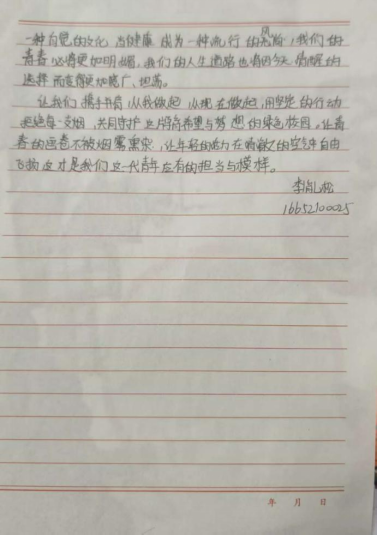 一种自觉的文化,当健康成为一种流行的风尚,我们的
青春必将更加明媚,我们的人生道路也将因今天清醒的
选择而变得更加宽广、坦荡。
让我们携手并肩,从我做起,从现在做起,用坚定的行动
拒绝每一支烟,共同守护这片满希望与梦想的绿色校园。让青
春的画卷不被烟雾熏染,让年轻的活力在清澈的空气中自由
飞扬,这才是我们这一代青年应有的担当与模样。
李松
16652100025
年 月 日